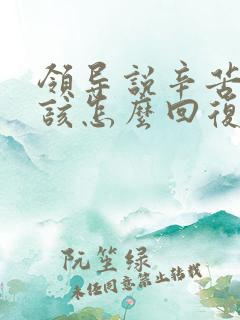 領导説辛苦
該怎麼回復
阮笙绿
未经同意禁止转载